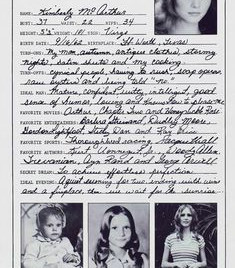 NAME: Kimberly McArthur
BUST: 37 WAIST: 22 HIPS: 34
HEIGHT: 5'2" WEIGHT: 101 SIGN: Virgo
BIRTH DATE: 9/16/62 BIRTHPLACE: Ft. Worth, Texas
TURN-ONS: My mom, autumn, antique clothes, stormy
nights, satin sheets and my cooking.
TURN-OFFS: cynical people, having to rush, soap operas
and being told "no."
IDEAL MAN: Mature, confident, witty, intelligent, good
sense of humor, loving and knows how to please me
FAVORITE MOVIES: Arthur, Chapter Two and
FAVORITE ENTERTAINERS: Barbra Streisand, Dudley Moore,
Gordon Lightfoot, Steely Dan and
FAVORITE SPORTS: Thoroughbred racing, Racquetball
FAVORITE AUTHORS: Kurt Vonnegut Jr., Woody Allen,
Trevanian, Ayn Rand and George Orwell
SECRET DREAM: To achieve effortless perfection
IDEAL EVENING: A quiet evening for two ending with wine
and a fireplace, then we wait for the sunrise